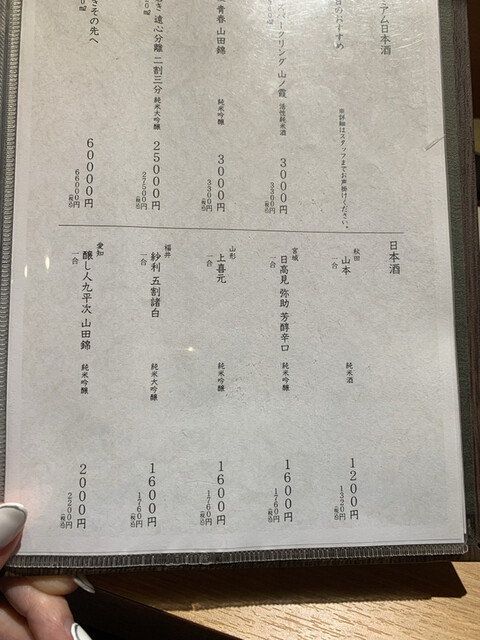 アム日本酒
日のおすすめ
※詳細はスタッフまでお声掛けください。
パークリング 山ノ霞 活性純米酒
3000円
3300円(税込)
青春 山田錦 純米吟醸
3000円
3300円(税込)
き 遠心分離 二割三分 純米大吟醸
25000円
27500円(税込)
きその先へ
60000円
66000円(税込)
日本酒
秋田
山本 純米酒
一合
1200円
1320円(税込)
宮城
日高見 弥助 芳醇辛口 純米吟醸
一合
1600円
1760円(税込)
山形
上喜元 純米吟醸
一合
1600円
1760円(税込)
福井
紗利 五割諸白 純米大吟醸
一合
1600円
1760円(税込)
愛知
醸し人九平次 山田錦 純米吟醸
一合
2000円
2200円(税込)